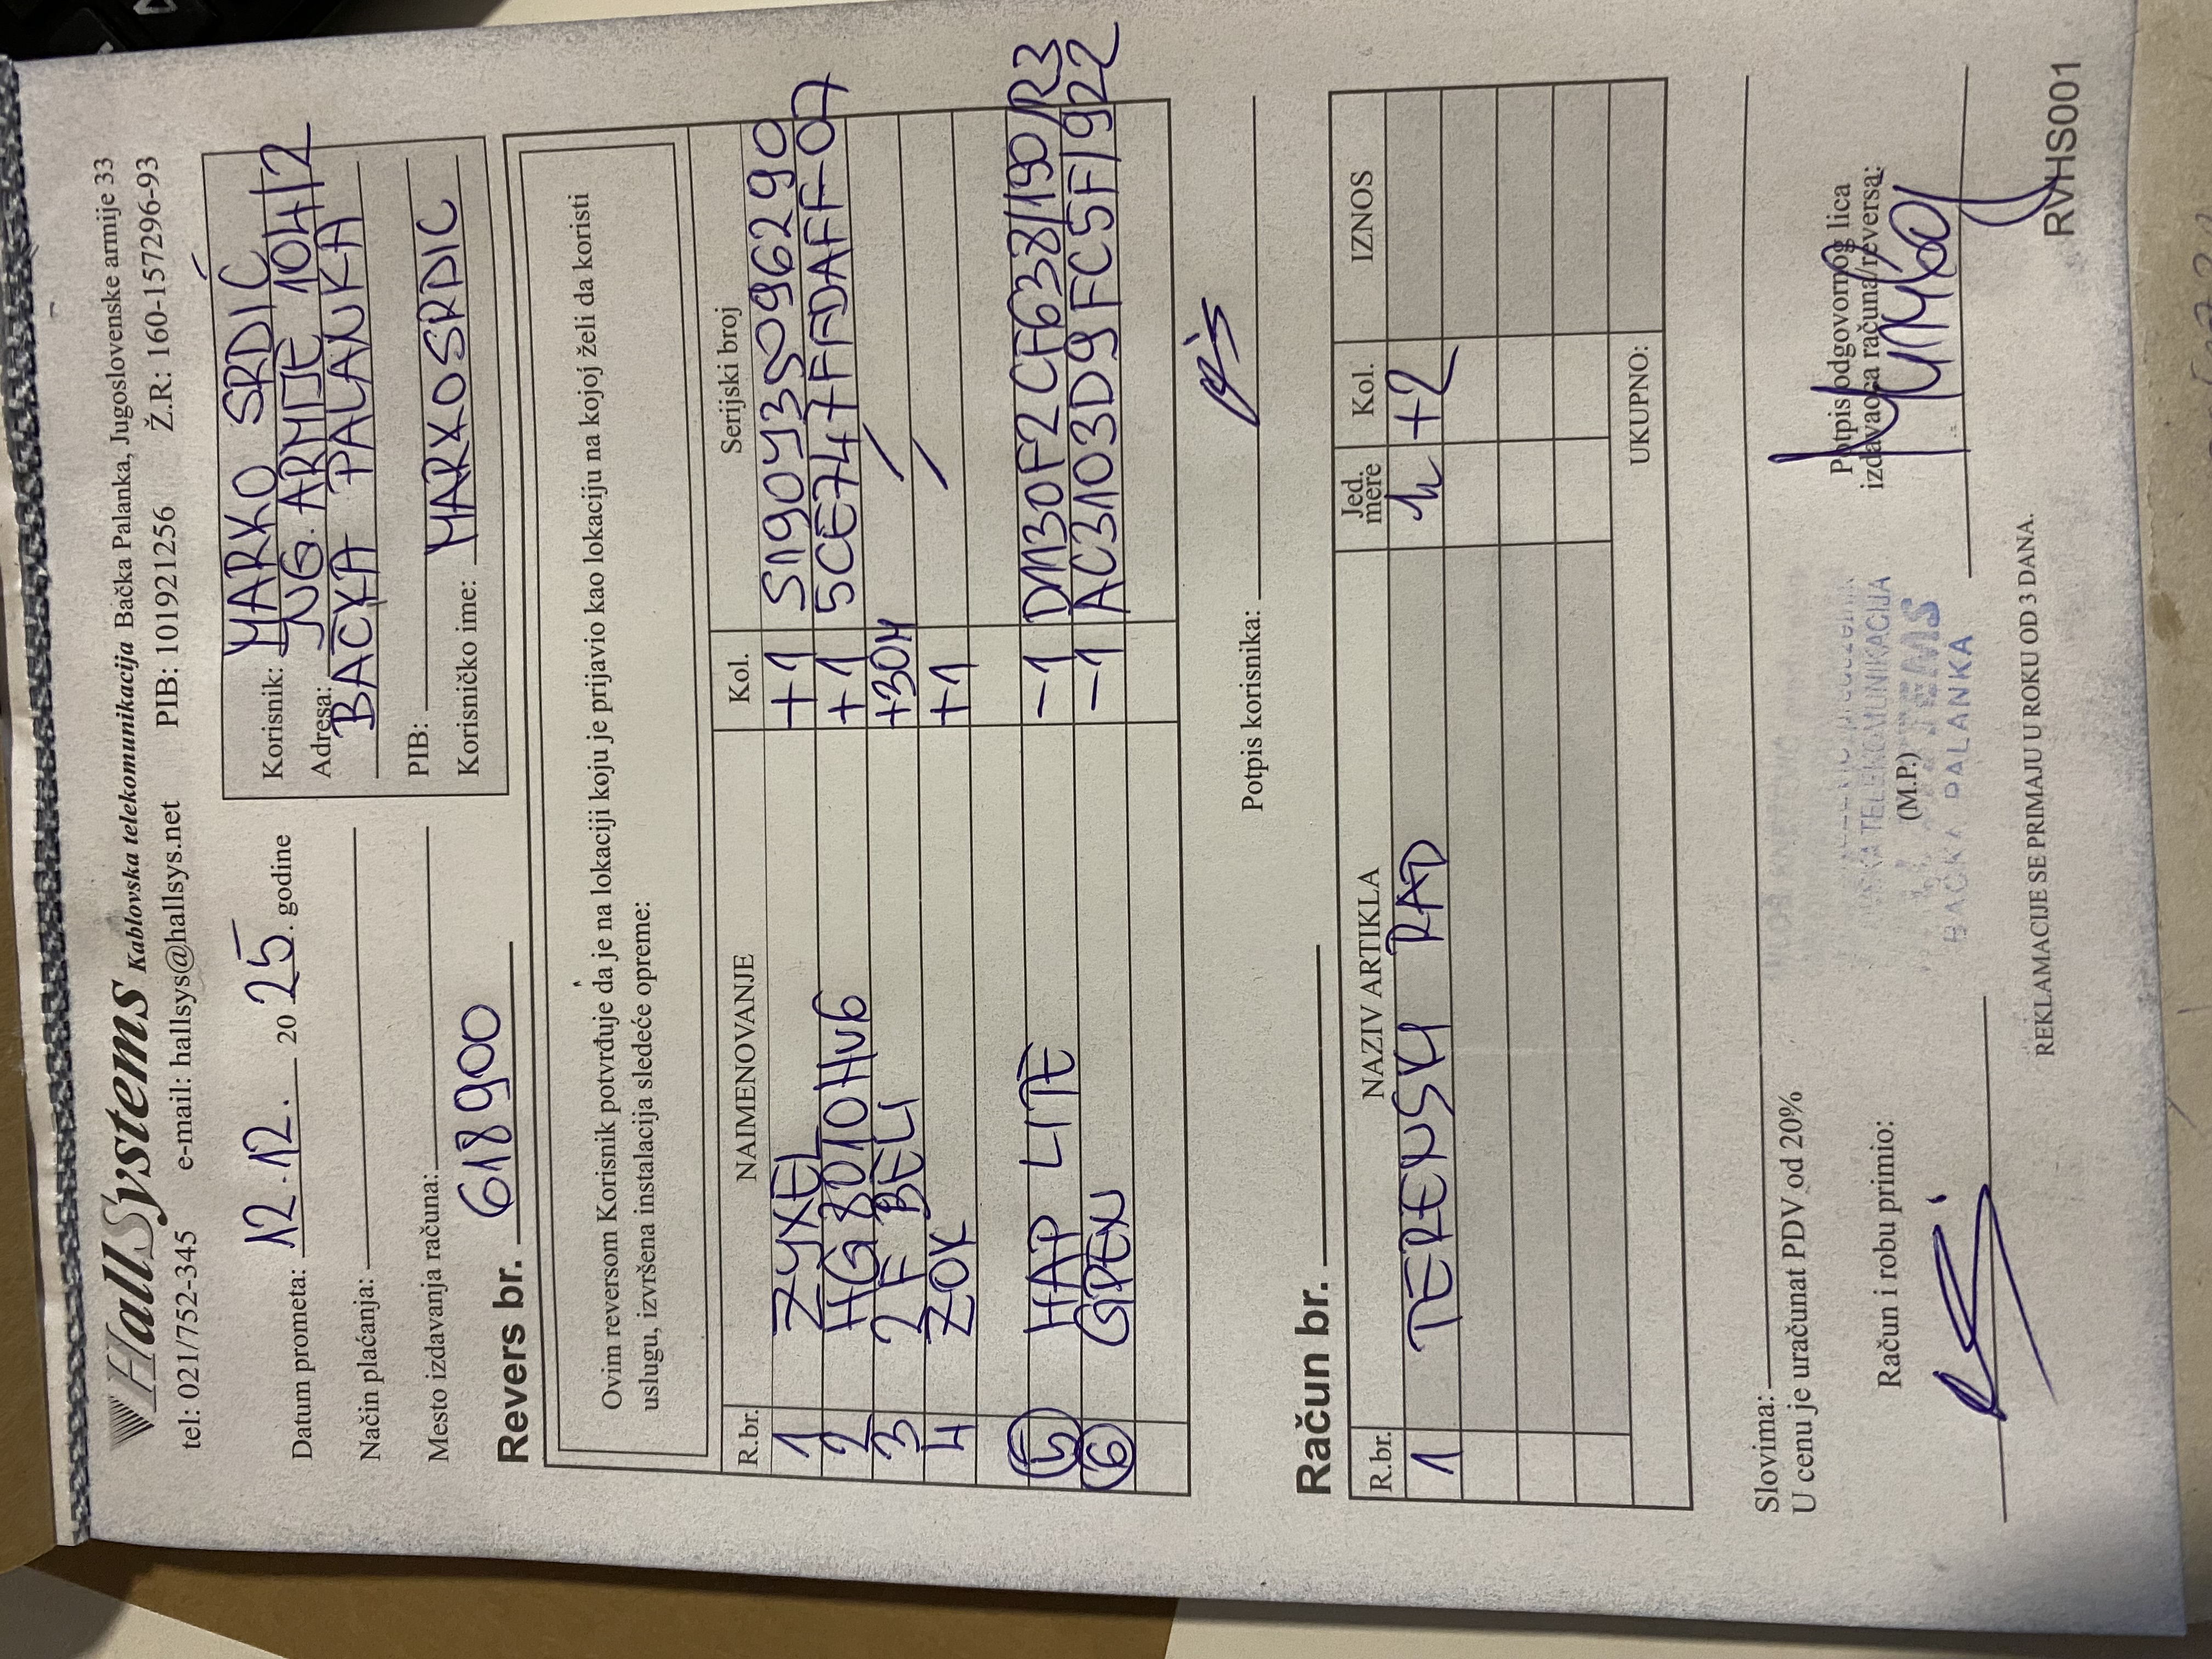 HallSystems Kablovska telekomunikacija Bačka Palanka, Jugoslovenske armije 33
tel: 021/752-345 e-mail: hallsys@hallsys.net PIB: 101921256 Ž.R: 160-157296-93
Datum prometa: 12.12. 20 25. godine
Način plaćanja:
Mesto izdavanja računa:
Korisnik: MARKO SRDIĆ
Adresa: JUG. ARMIJE 104/2
BACKA PALANKA
PIB:
Korisničko ime: MARKOSRDIC
Revers br. 618900
Ovim reversom Korisnik potvrđuje da je na lokaciji koju je prijavio kao lokaciju na kojoj želi da koristi
uslugu, izvršena instalacija sledeće opreme:
R.br. NAIMENOVANJE Kol. Serijski broj
1 ZYXEL +1 S190Y35096290
2 HG8010Hv6 +1 5CE747FFDAFF-07
3 2F BELI +30M /
4 ZOK +1 /
5 HAP LITE -1 D1130F2CF638/190/R3
6 GPEN -1 AC3103D9FC5F/922
Potpis korisnika:
Račun br.
R.br. NAZIV ARTIKLA Jed. mere Kol. IZNOS
1 TERENSKI RAD h +2
UKUPNO:
Slovima:
U cenu je uračunat PDV od 20%
Račun i robu primio:
(M.P.)
Potpis odgovornog lica
izdavaoca računa/reversa:
TELEKOMUNIKACIJA
BAČKA PALANKA
REKLAMACIJE SE PRIMAJU U ROKU OD 3 DANA.
RVHS001